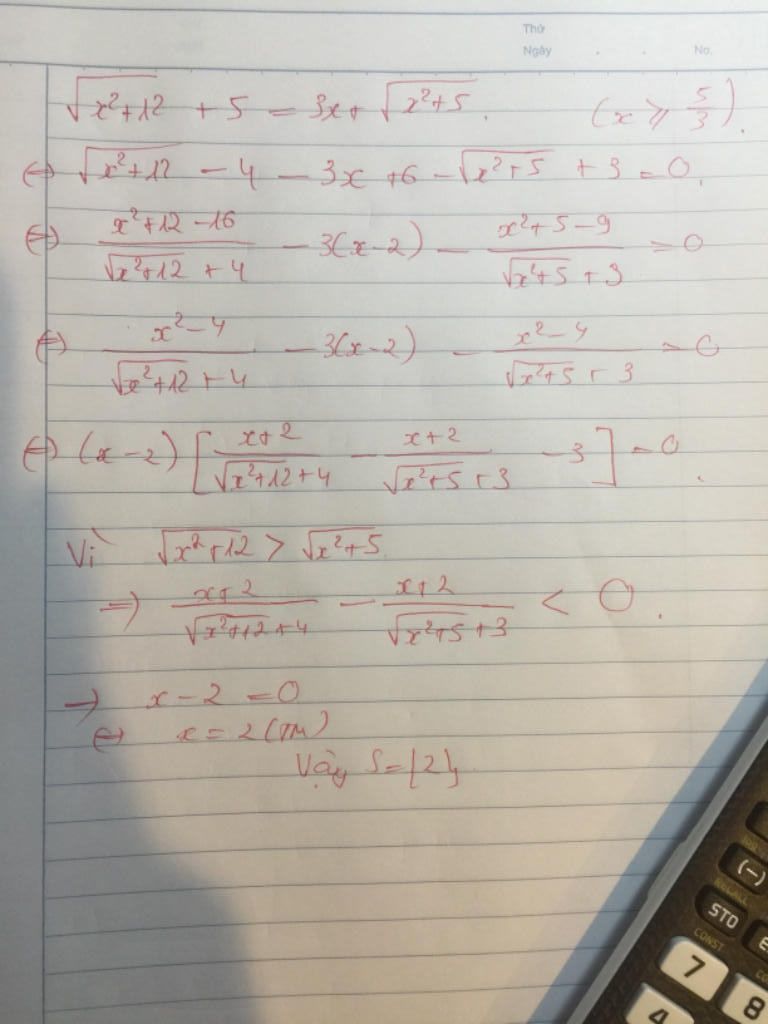 Thứ
Ngày . . No.
√(x²+12) + 5 = 3x + √(x²+5). (x ⩾ 5/3).
⇔ √(x²+12) - 4 - 3x + 6 - √(x²+5) + 3 = 0.
⇔ (x²+12-16)/(√(x²+12) + 4) - 3(x-2) - (x²+5-9)/(√(x²+5) + 3) = 0
⇔ (x²-4)/(√(x²+12) + 4) - 3(x-2) - (x²-4)/(√(x²+5) + 3) = 0
⇔ (x-2) [(x+2)/(√(x²+12) + 4) - (x+2)/(√(x²+5) + 3) - 3] = 0.
Vì √(x²+12) > √(x²+5).
⇒ (x+2)/(√(x²+12) + 4) - (x+2)/(√(x²+5) + 3) < 0.
→ x - 2 = 0
⇔ x = 2 (TM)
Vậy S = {2}.
(-)
RECALL
STO
CONST
7
8
4